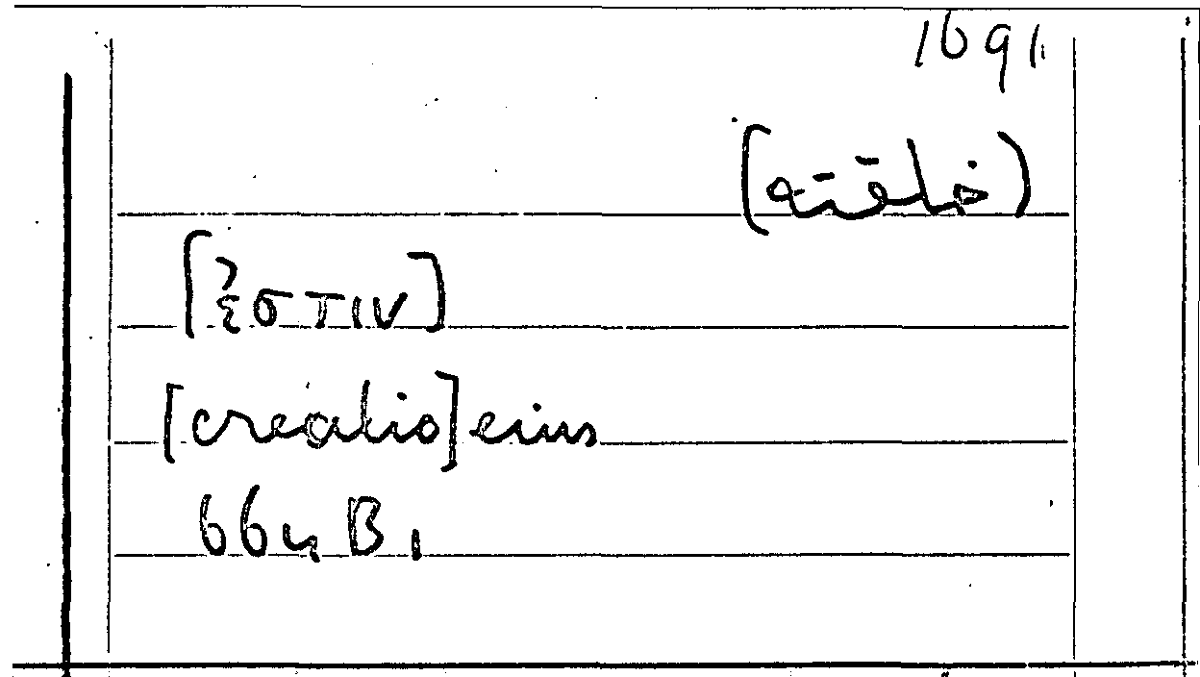 1691
(خلقته]
[ἐστιν]
[creatio] eius
664 B 1